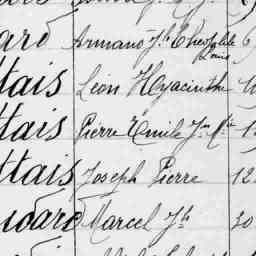 ard Armand Jh Théophile 6
Louis
ttais Léon Hyacinthe
ttais Pierre Emile Jn
ttais Joseph Pierre 12
ouard Marcel Jh 30